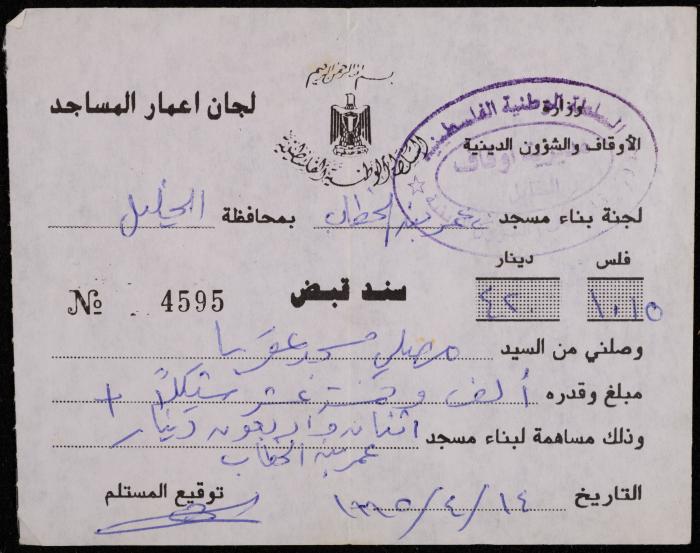 بسم الله الرحمن الرحيم
لجان اعمار المساجد
السلطة الوطنية الفلسطينية
السلطة الوطنية الفلسطينية
وزارة
الأوقاف والشؤون الدينية
مديرية أوقاف
لجنة بناء مسجد عمر بن الخطاب بمحافظة الخليل
فلس دينار
١٠١٥ ٤٢٠
سند قبض
№ 4595
وصلني من السيد مصلي مسجد
مبلغ وقدره ألف وخمسة عشر شيكلاً +
وذلك مساهمة لبناء مسجد اثنان واربعون دينار
عمر بن الخطاب
التاريخ ١٤/٤/١٩٩٥
توقيع المستلم